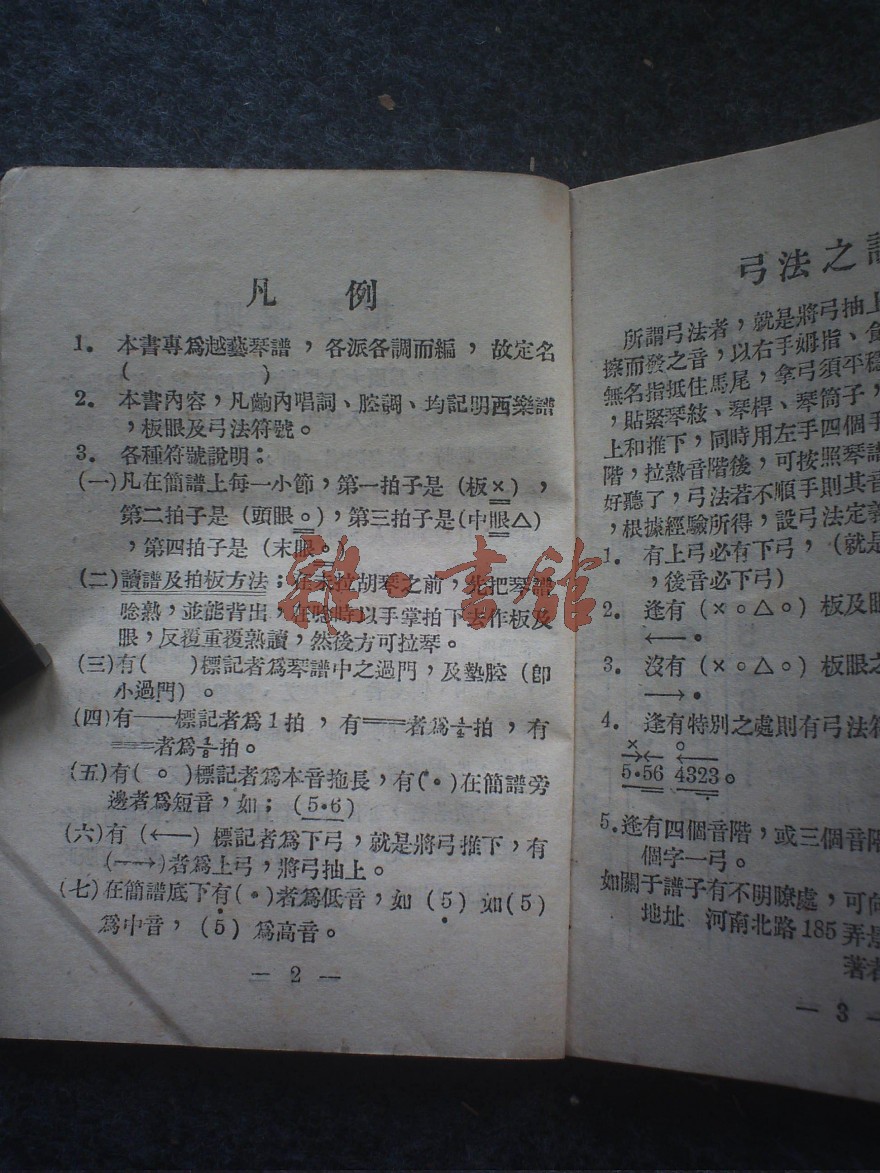 凡 例
1。 本書專爲越藝琴譜，各派各調而編，故定名
( )
2。 本書內容，凡齣內唱詞、腔調、均記明西樂譜
，板眼及弓法符號。
3。 各種符號說明：
(一)凡在簡譜上每一小節，第一拍子是(板×)，
第二拍子是(頭眼○)，第三拍子是(中眼△)
，第四拍子是(末眼○)
(二)讀譜及拍板方法；在未拉胡琴之前，先把琴譜
唸熟，並能背出，在唸時以手掌拍下去作板及
眼，反覆重覆熟讀，然後方可拉琴。
(三)有( )標記者爲琴譜中之過門，及墊腔(卽
小過門)。
(四)有——標記者爲1拍，有══者爲½拍，有
≡≡者爲⅛拍。
(五)有(○)標記者爲本音拖長，有(•)在簡譜旁
邊者爲短音，如；(5•6)
(六)有(←—)標記者爲下弓，就是將弓推下，有
(—→)者爲上弓，將弓抽上。
(七)在簡譜底下有(•)者爲低音，如(5̣)如(5)
爲中音，(5̇)爲高音。
— 2 —
弓法之
所謂弓法者，就是將弓抽上
擦而發之音，以右手姆指、食
無名指抵住馬尾，拿弓須平穩
，貼緊琴絃、琴桿、琴筒子，
上和推下，同時用左手四個手
階，拉熟音階後，可按照琴譜
好聽了，弓法若不順手則其音
，根據經驗所得，設弓法定
1。 有上弓必有下弓，(就是
，後音必下弓)
2。 逢有(×○△○)板及眼
←—。
3。 沒有(×○△○)板眼之
—→。
4。 逢有特別之處則有弓法符
× ○
→← ←—
5•56 4323。
5。逢有四個音階，或三個音階
個字一弓。
如關于譜子有不明瞭處，可向
地址 河南北路185弄
著者
— 3 —
雜·書館